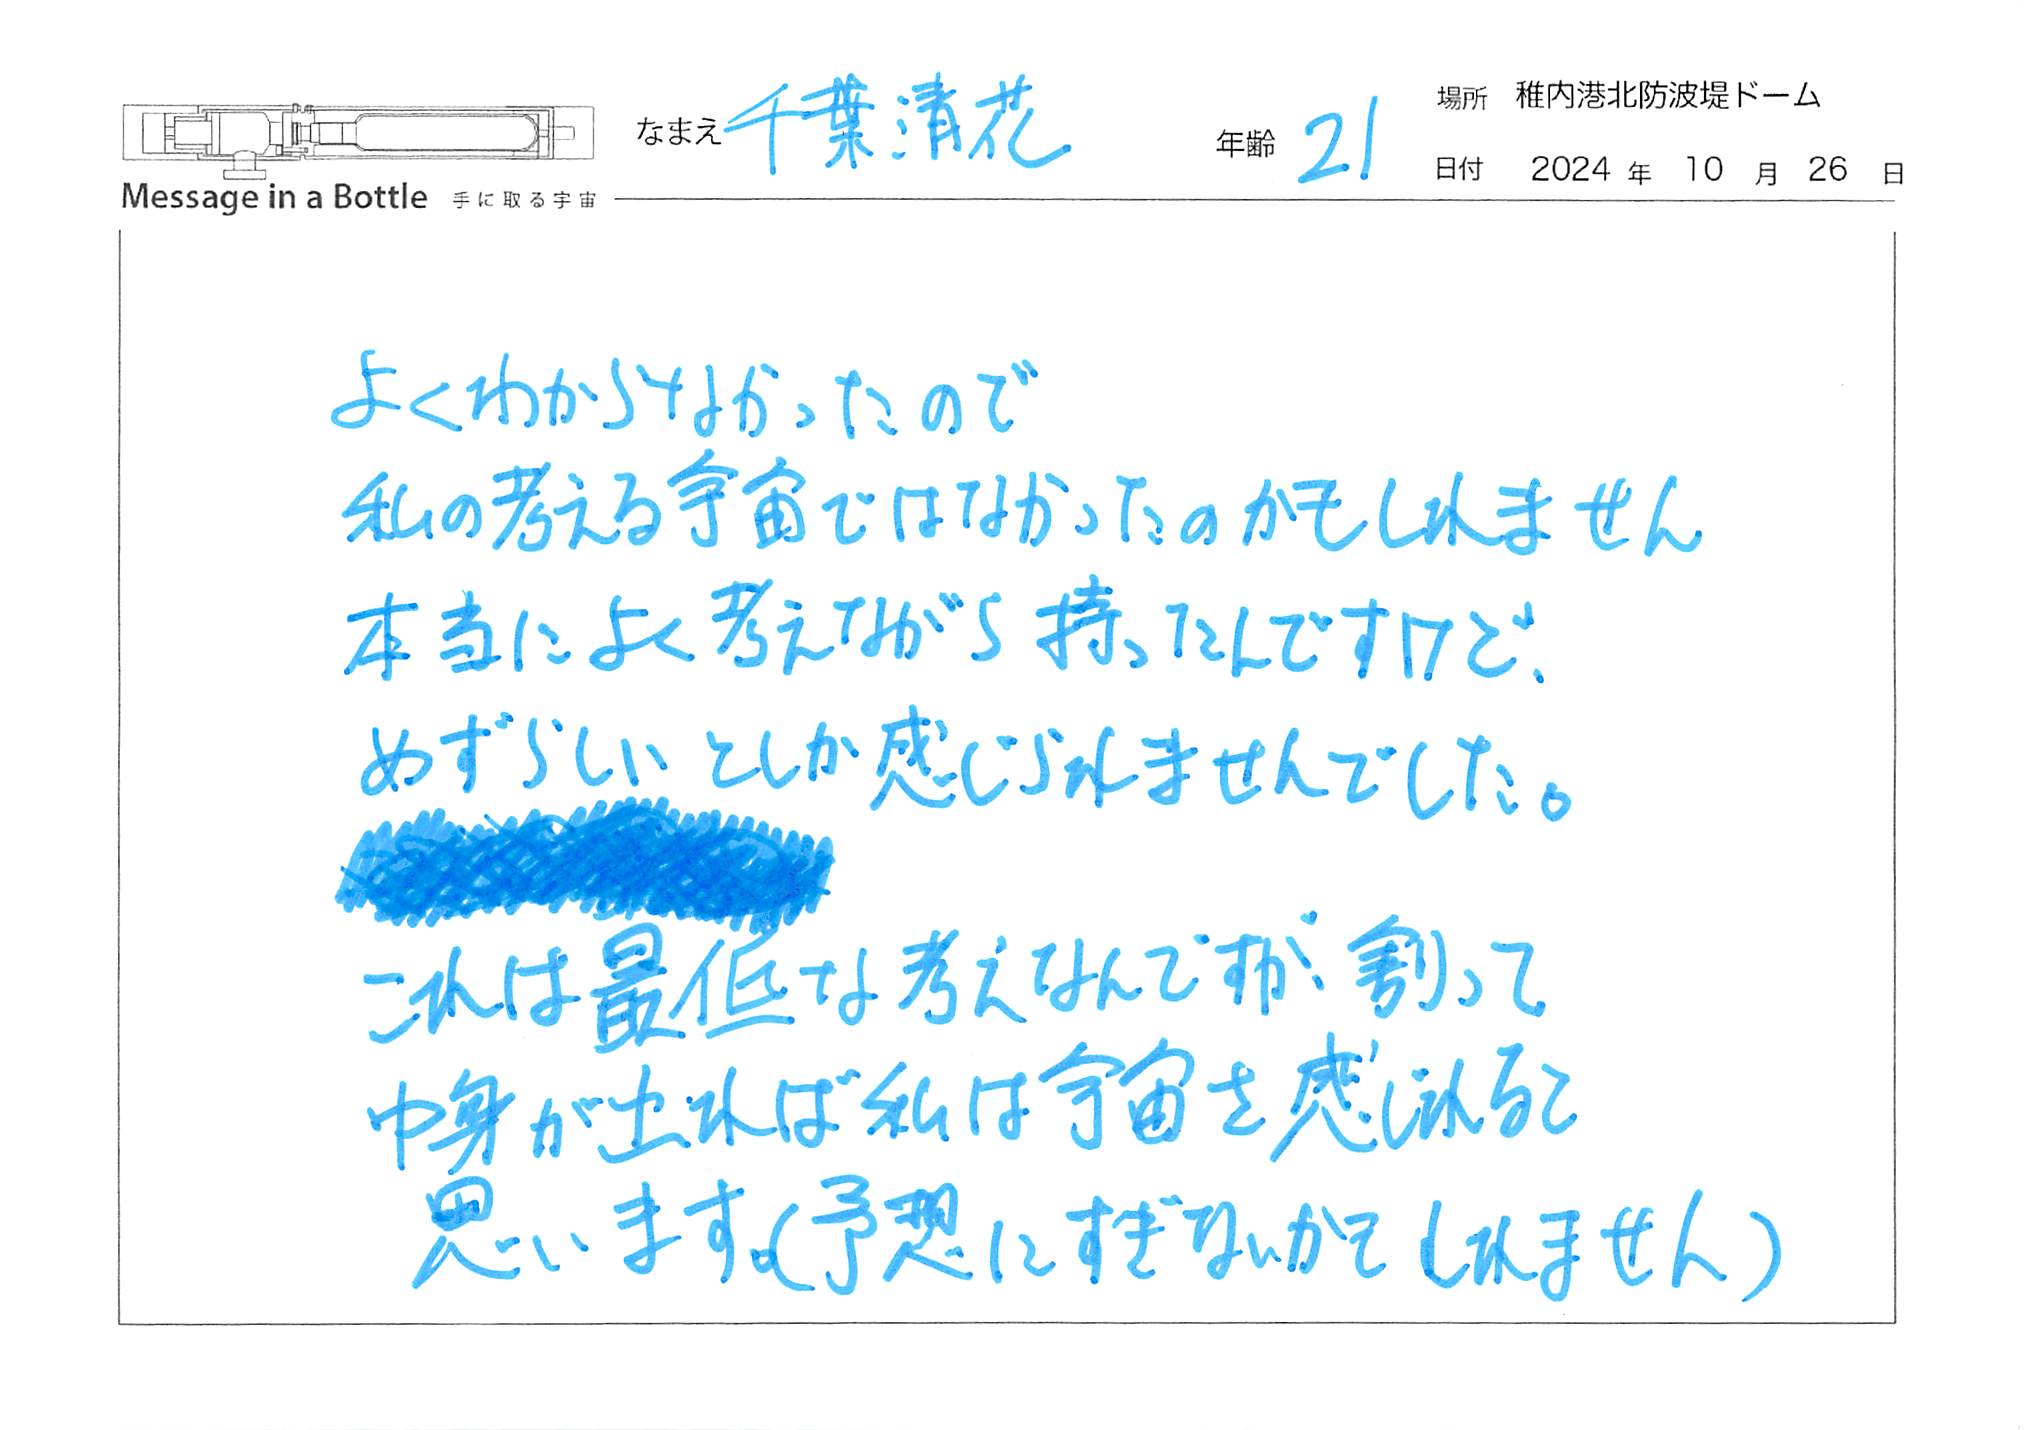 なまえ 千葉清花 年齢 21 場所 稚内港北防波堤ドーム
日付 2024 年 10 月 26 日
Message in a Bottle 手に取る宇宙
よくわからなかったので
私の考える宇宙ではなかったのかもしれません
本当によく考えながら持ったんですけど、
めずらしいとしか感じられませんでした。
これは最低な考えなんですが、割って
中身が出れば私は宇宙を感じれると
思います。(予想にすぎないかもしれません)